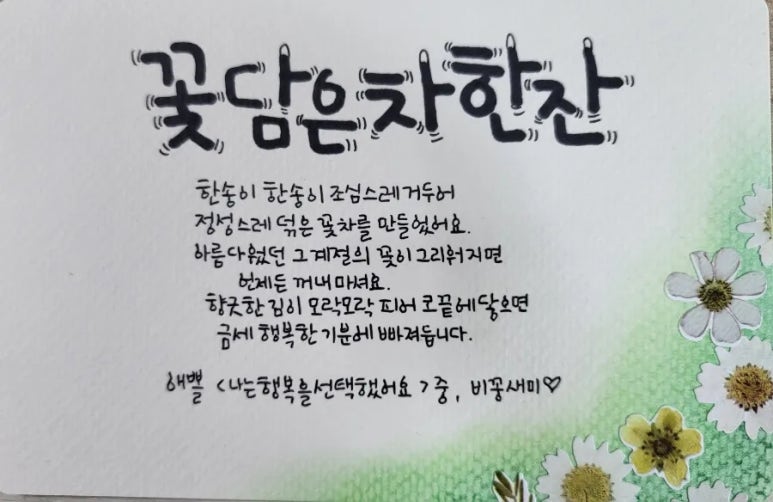 꽃담은차한잔
한송이 한송이 조심스레 거두어
정성스레 덖은 꽃차를 만들었어요.
아름다웠던 그계절의 꽃이 그리워지면
언제든 꺼내 마셔요.
향긋한 김이 모락모락 피어 코끝에 닿으면
금세 행복한 기분에 빠져듭니다.
해뽈 <나는행복을선택했어요>중, 비꽁새미♡